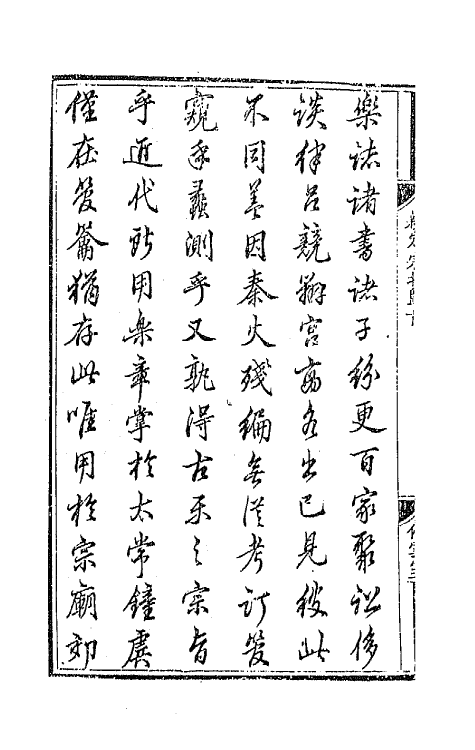 樂誌諸書諸子紛更百家聚訟侈
談律呂競辯宮商各出己見彼此
不同葢因秦火殘編無從考訂管
窺乎蠡測乎又孰得古樂之宗旨
乎近代所用樂章掌於太常鐘虡
僅在管籥猶存此唯用於宗廟郊